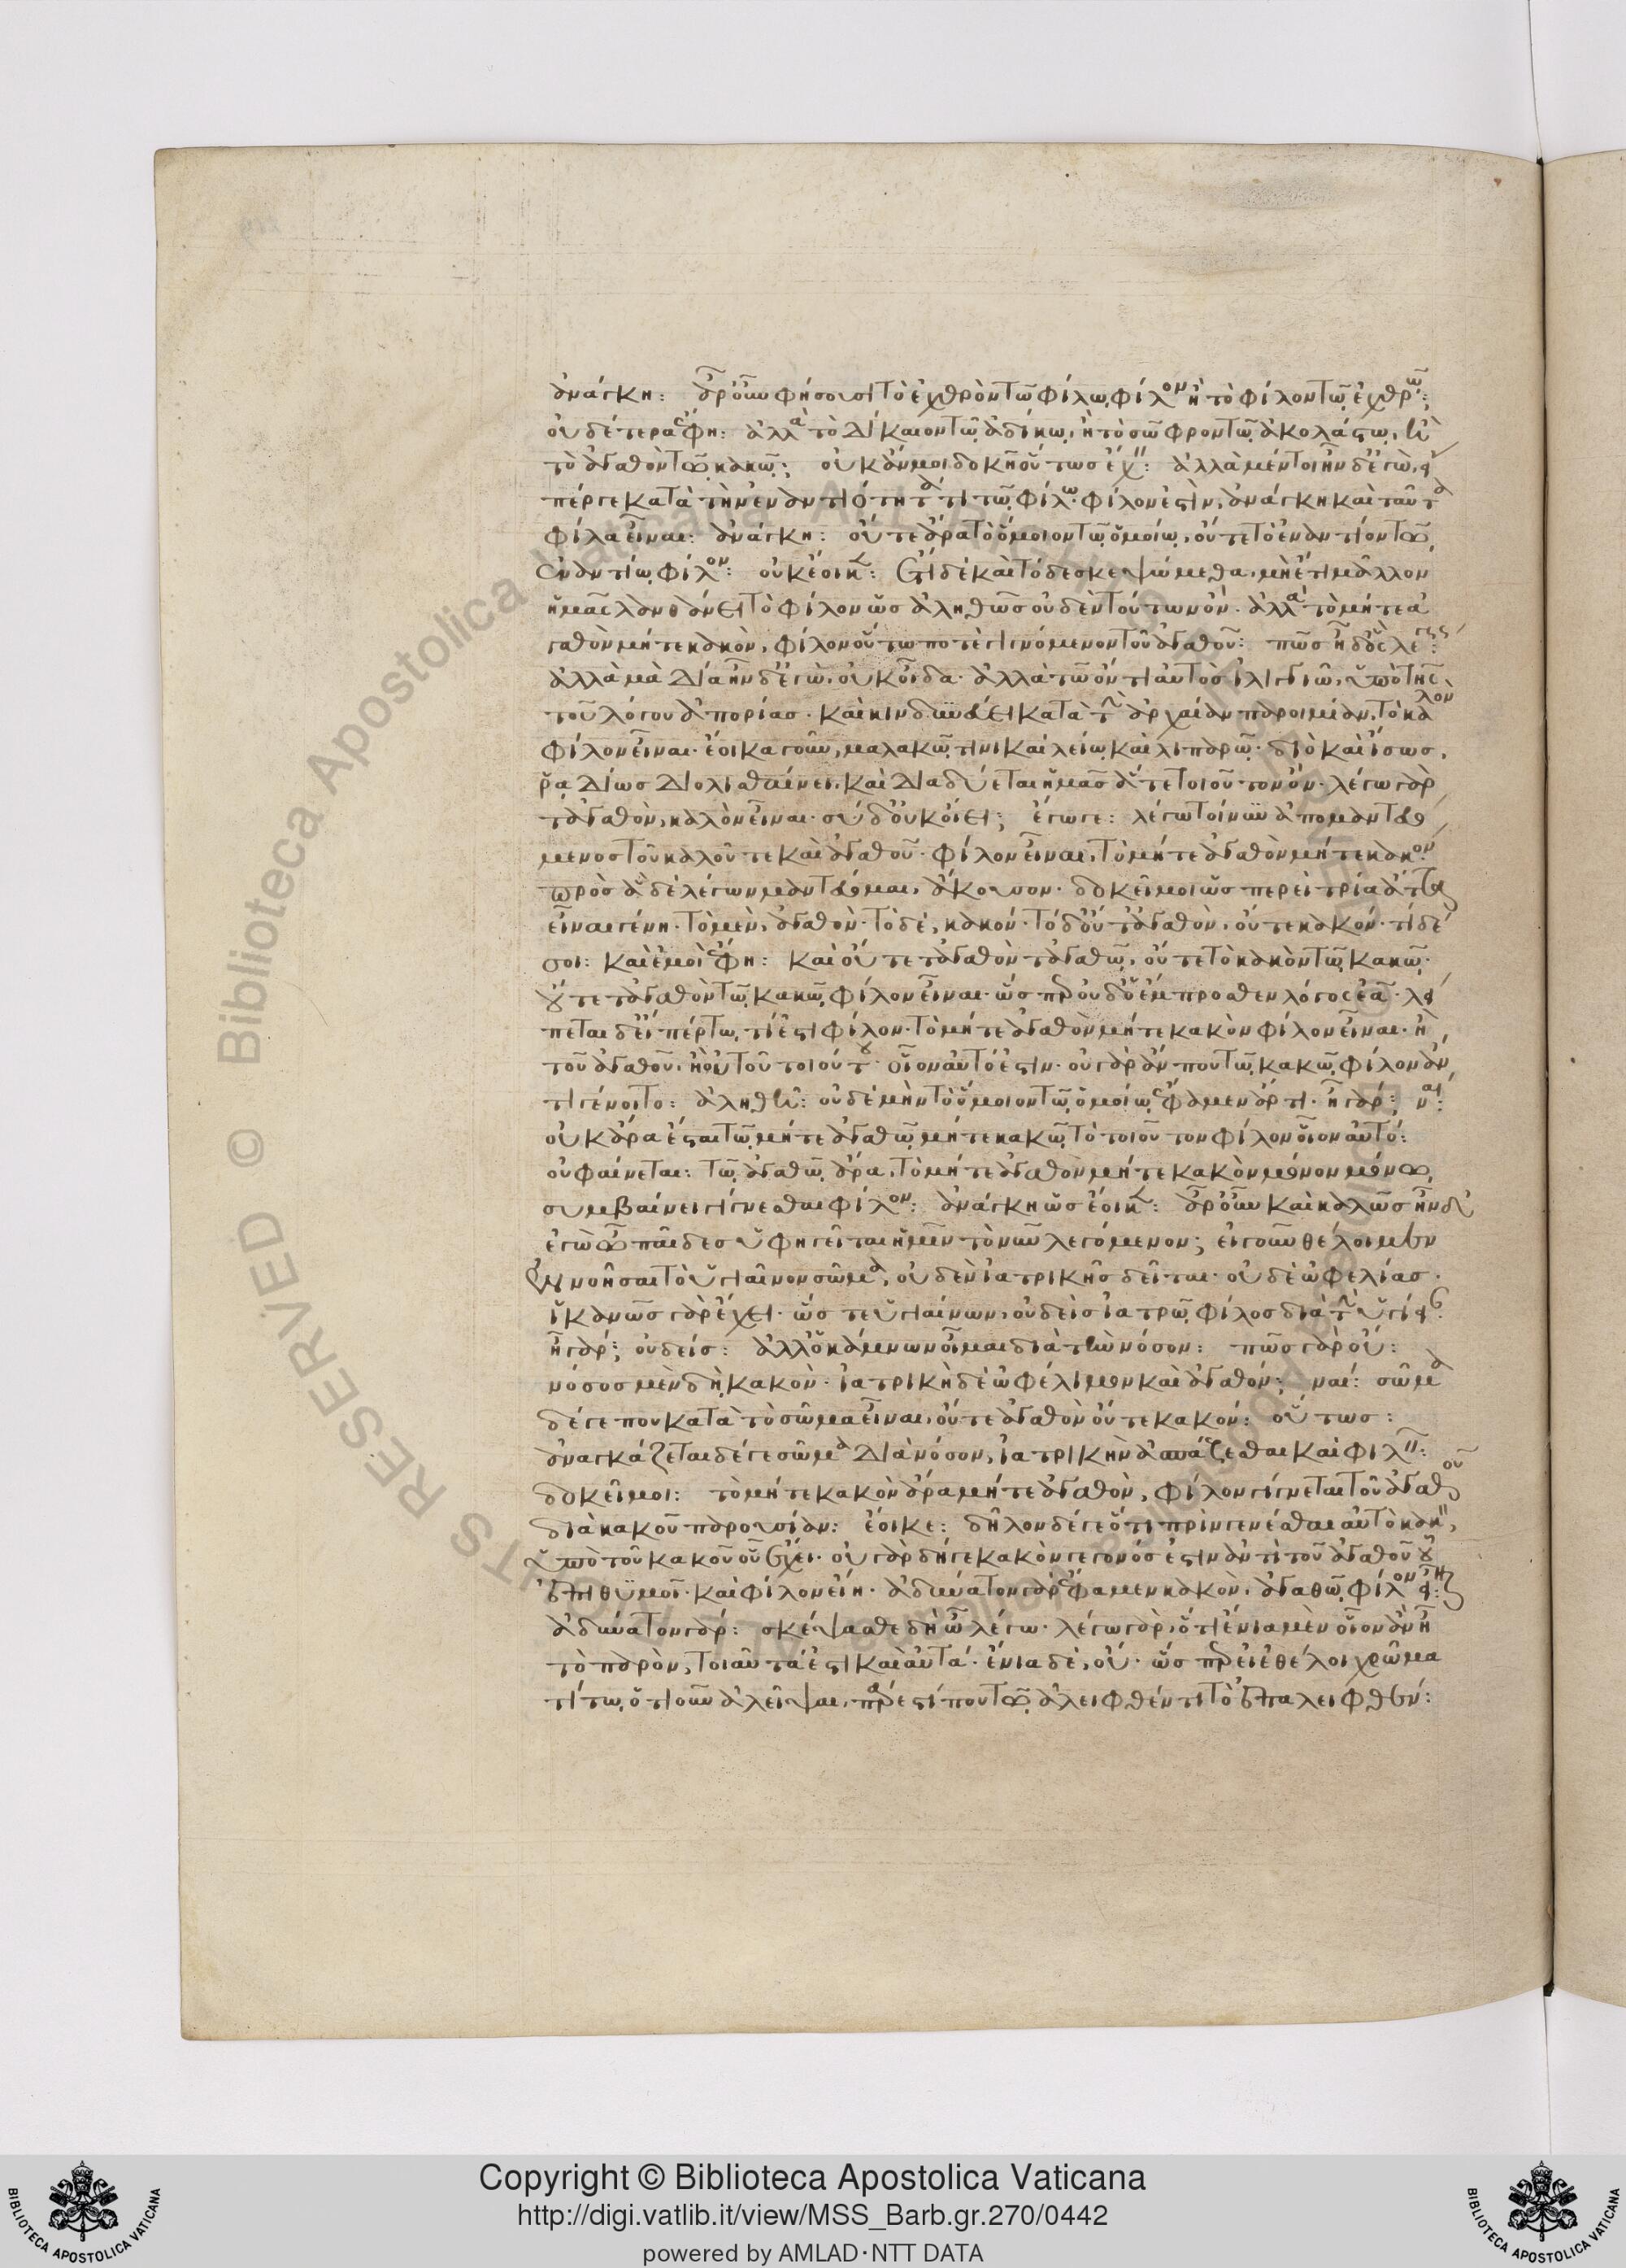 ἀνάγκη: ἆρ' οὖν φήσουσι τὸ ἐχθρὸν τῶ φίλω, φίλον ἢ τὸ φίλον τῶ ἐχθρῶ:
οὐδέτερα ἔφη: ἀλλὰ τὸ δίκαιον τῶ ἀδίκω, ἢ τὸ σῶφρον τῶ ἀκολάστω, ἢ
τὸ ἀγαθὸν τῶ κακῶ; οὐκ ἄν μοι δοκῆ οὕτως ἔχειν: ἀλλὰ μέντοι ἦν δ' ἐγὼ, εἴ
πέρ γε κατὰ τὴν ἐναντιότητά τι τῶ φίλω φίλον ἐστὶν, ἀνάγκη καὶ ταῦτα
φίλα εἶναι: ἀνάγκη: οὔτε ἄρα τὸ ὅμοιον τῶ ὁμοίω, οὔτε τὸ ἐναντίον τῶ
ἐναντίω φίλον: οὐκ ἔοικεν: ἔτι δὲ καὶ τόδε σκεψώμεθα, μὴ ἔτι μᾶλλον
ἡμᾶς λανθάνει τὸ φίλον ὡς ἀληθῶς οὐδὲν τούτων ὄν. ἀλλὰ τὸ μήτε ἀ
γαθὸν μήτε κακὸν, φίλον οὕτω ποτὲ γιγνόμενον τοῦ ἀγαθοῦ: πῶς ἦ δ' ὃς λέγεις:
ἀλλὰ μὰ Δία ἦν δ' ἐγὼ, οὐκ οἶδα. ἀλλὰ τῶ ὄντι αὐτὸς ἰλιγγιῶ, ὑπὸ τῆς
τοῦ λόγου ἀπορίας. καὶ κινδυνεύει κατὰ τὴν ἀρχαίαν παροιμίαν, τὸ καλὸν
φίλον εἶναι. ἔοικε γοῦν, μαλακῶ τινι καὶ λείω καὶ λιπαρῶ. διὸ καὶ ἴσως,
ῥαδίως διολισθαίνει, καὶ διαδύεται ἡμᾶς ἅτε τοιοῦτον ὄν. λέγω γὰρ
τἀγαθὸν, καλὸν εἶναι. σὺ δ' οὐκ οἴει; ἔγωγε: λέγω τοίνυν ἀπομαντευό
μενος τοῦ καλοῦ τε καὶ ἀγαθοῦ. φίλον εἶναι, τὸ μήτε ἀγαθὸν μήτε κακὸν.
πρὸς ἃ δὲ λέγων μαντεύομαι, ἄκουσον. δοκεῖ μοι ὡς περεὶ τρία ἄττα
εἶναι γένη. τὸ μὲν, ἀγαθὸν. τὸ δὲ, κακόν. τὸ δ' οὔτ' ἀγαθὸν, οὔτε κακόν. τί δέ
σοι: καὶ ἐμοὶ ἔφη: καὶ οὔτε τἀγαθὸν τἀγαθῶ, οὔτε τὸ κακὸν τῶ κακῶ.
οὔτε τἀγαθὸν τῶ κακῶ φίλον εἶναι. ὥσπερ οὐδ' ὁ ἔμπροσθεν λόγος ἐᾶ. λεί
πεται δ' εἴπέρ τω τί ἐστι φίλον. τὸ μήτε ἀγαθὸν μήτε κακὸν φίλον εἶναι. ἢ
τοῦ ἀγαθοῦ. ἢ τοῦ τοιούτου οἷον αὐτό ἐστιν. οὐ γὰρ ἄν που τῶ κακῶ φίλον ἄν
τι γένοιτο: ἀληθῆ: οὐδὲ μὴν τὸ ὅμοιον τῶ ὁμοίω ἔφαμεν ἄρτι. ἦ γάρ; ναί:
οὐκ ἄρα ἔσται τῶ μήτε ἀγαθῶ μήτε κακῶ τὸ τοιοῦτον φίλον οἷον αὐτό:
οὐ φαίνεται: τῶ ἀγαθῶ ἄρα, τὸ μήτε ἀγαθὸν μήτε κακὸν μόνον μόνω
συμβαίνει γίγνεσθαι φίλον: ἀνάγκη ὡς ἔοικεν: ἆρ' οὖν καὶ καλῶς ἦν δ'
ἐγὼ ὦ παῖδες ὑφηγεῖται ἡμῖν τὸ νῦν λεγόμενον; εἰ γοῦν θέλοιμεν
ἐννοῆσαι τὸ ὑγιαῖνον σῶμα, οὐδὲν ἰατρικῆς δεῖται. οὐδὲ ὠφελίας.
ἱκανῶς γὰρ ἔχει. ὥστε ὑγιαίνων, οὐδεὶς ἰατρῶ φίλος διὰ τὴν ὑγίειαν.
ἦ γάρ; οὐδείς: ἀλλ' ὁ κάμνων οἶμαι διὰ τὴν νόσον: πῶς γὰρ οὔ:
νόσος μὲν δὴ, κακὸν. ἰατρικὴ δὲ ὠφέλιμον καὶ ἀγαθόν; ναί: σῶμα
δέ γε που κατὰ τὸ σῶμα εἶναι, οὔτε ἀγαθὸν οὔτε κακόν: οὕτως:
ἀναγκάζεται δέ γε σῶμα διὰ νόσον, ἰατρικὴν ἀσπάζεσθαι καὶ φιλεῖν:
δοκεῖ μοι: τὸ μήτε κακὸν ἄρα μήτε ἀγαθὸν, φίλον γίγνεται τοῦ ἀγαθοῦ
διὰ κακοῦ παρουσίαν: ἔοικε: δῆλον δέ γε ὅτι πρὶν γενέσθαι αὐτὸ κακὸν,
ὑπὸ τοῦ κακοῦ οὗ ἔχει. οὐ γὰρ δή γε κακὸν γεγονός ἐστιν ἄν τι τοῦ ἀγαθοῦ οὗ
ἐπιθυμοῖ. καὶ φίλον εἴη. ἀδύνατον γὰρ ἔφαμεν κακὸν, ἀγαθῶ φίλον εἶναι:
ἀδύνατον γάρ: σκέψασθε δὴ ὃ λέγω. λέγω γὰρ, ὅτι ἔνια μὲν οἷον ἂν ἦ
τὸ παρὸν, τοιαῦτά ἐστι καὶ αὐτά. ἔνια δὲ, οὔ. ὥσπερ εἰ ἐθέλοι χρῶμα
τί τω, ὁτιοῦν ἀλεῖψαι, πάρεστί που τῶ ἀλειφθέντι τὸ ἐπαλειφθέν:
Copyright © Biblioteca Apostolica Vaticana
http://digi.vatlib.it/view/MSS_Barb.gr.270/0442
powered by AMLAD·NTT DATA